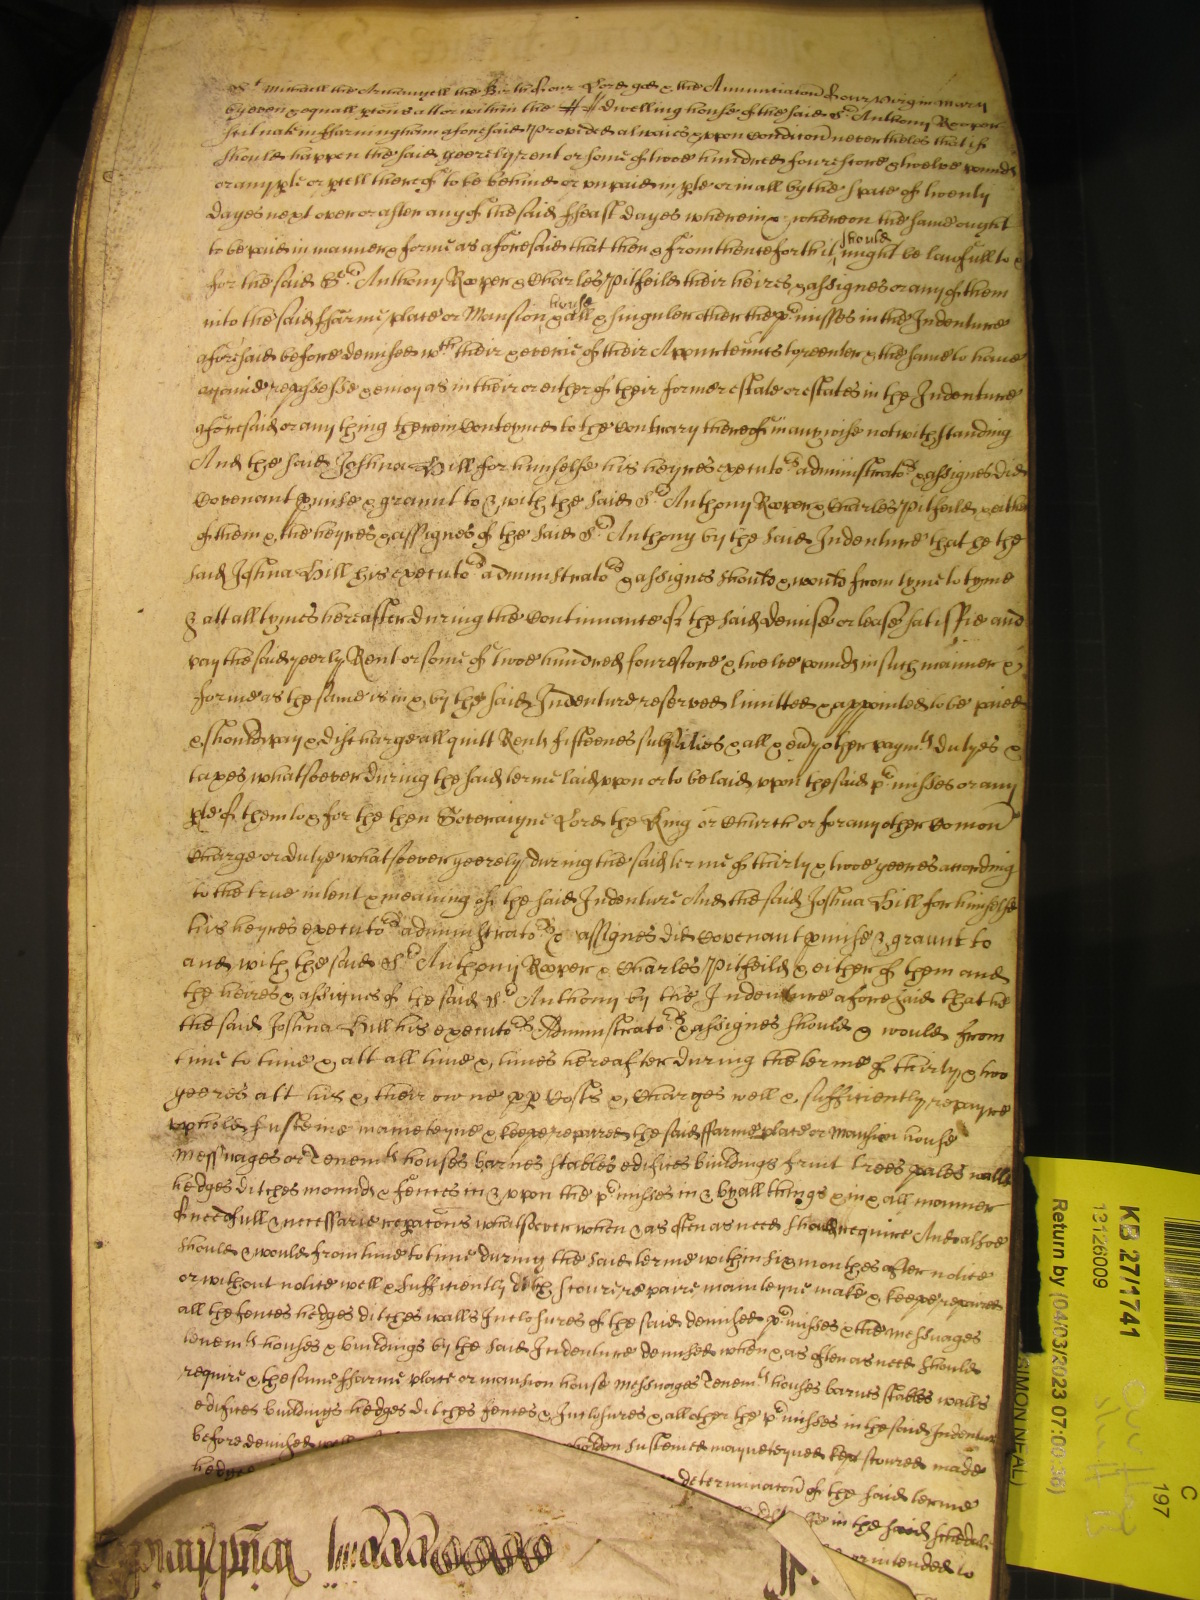 St Michaell the Archangell the Birth of our Lord god & the Annuntiacon of our virgin Mary
by even & equall porcons att or within the dwelling house of the said Sr Anthony Rooper
scituate in ffarningham aforesaid Provided alwaies & uppon condicon neverthelesse that if it
should happen the said yeerely rent or some of twoe hundred fourescore & twelve pounds
or any pte or pcell thereof to be behind or unpaid in pte or in all by the space of twenty
dayes next over or after any of the said ffeast dayes wherein & whereon the same ought
to be paid in manner & forme as aforesaid that then & from thenceforth it should might be lawfull to &
for the said Sr Anthony Rooper & Charles Pitfeild their heires & assignes or any of them
into the said ffarme place or Mansion house & all & singuler other the pr misses in the Indenture
aforesaid before demised wth their & everie of their Appurtennts to reenter & the same to have
againe repossesse & enioy as in their or either of their former estate or estates in the Indenture
aforesaid or any thing therein conteyned to the contrary thereof in any wise notwithstanding
And the said Joshua Hill for himselfe his heyres executors administrators & assignes did
covenant pmise & graunt to & with the said Sr Anthony Rooper & Charles Pitfeild & either
of them & the heyres & assignes of the said Sr Anthony by the said Indenture that he the
said Joshua Hill his executors administrators & assignes should & would from tyme to tyme
& att all tymes hereafter during the continuance of the said demise or lease satisfie and
pay the said yeerly Rent or some of twoe hundred fourescore & twelve pounds in such manner &
forme as the same is in & by the said Indenture reserved limitted & appointed to be paied
& should pay & discharge all quitt Rents fifteenes subsidies & all & evry other paymts dutyes &
taxes whatsoever during the said terme laid uppon or to be laid uppon the said pr misses or any
pte of them to & for the then Soveraigne Lord the King or Church or for any other comon
charge or dutye whatsoever yeerely during the said terme of thirty & twoe yeeres according
to the true intent & meaning of the said Indenture And the said Joshua Hill for himselfe
his heyres executors administrators & assignes did covenant pmise & graunt to
and with the said Sr Anthony Rooper & Charles Pitfeild & either of them and
the heires & assignes of the said Sr Anthony by the Indenture aforesaid that he
the said Joshua Hill his executors Administrators & assignes should & would from
time to time & att all time & times hereafter during the terme of thirty & two
yeeres att his & their owne pp costs & charges well & sufficiently repayre
uphold susteine mainteyne & keepe repaired the said ffarme place or Mansion house
Messuages or Tenemts houses barnes stables edifices buildings fruit trees pales walls
hedges ditches mounds & fences in & uppon the pr misses in & by all things & in & all manner
of needfull & necessarie repacons whatsoever when & as often as need should require And alsoe
should & would from time to time during the said terme within six monthes after notice
or without notice well & sufficiently ditch scoure repaire mainteyne make & keepe repaired
all the fences hedges ditches walls Inclosures of the said demised pr misses & the messuages
tenemts houses & buildings by the said Indenture demised when & as often as need should
require & the same ffarme place or mansion house messuages Tenemts houses barnes stables walls
edifices buildings hedges ditches fences & Inclosures & all other the pr misses in the said Indenture
before demised susteined maynteyned kept scoured made
hedged determinacon of the said terme
in the said
or intended to
KB 27/1741
13126009
Return by (04/03/2023 07:00:36)
(SIMON NEAL)
C
197